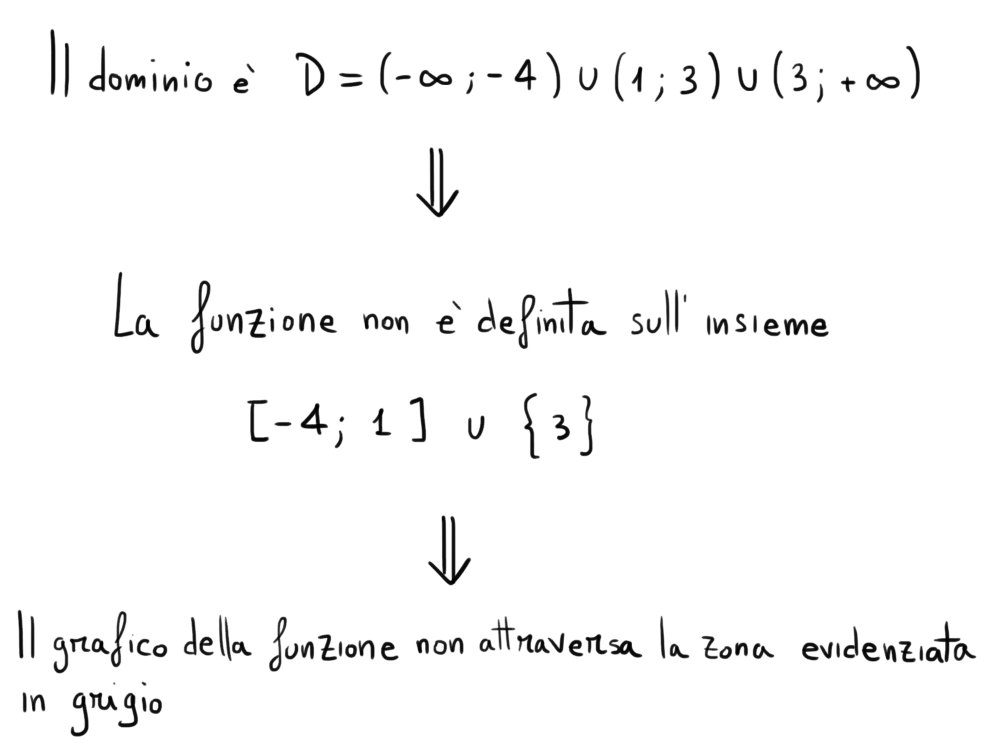 Il dominio è D = (-∞ ; -4) ∪ (1 ; 3) ∪ (3 ; +∞)
⇓
La funzione non è definita sull'insieme
[-4; 1] ∪ {3}
⇓
Il grafico della funzione non attraversa la zona evidenziata
in grigio